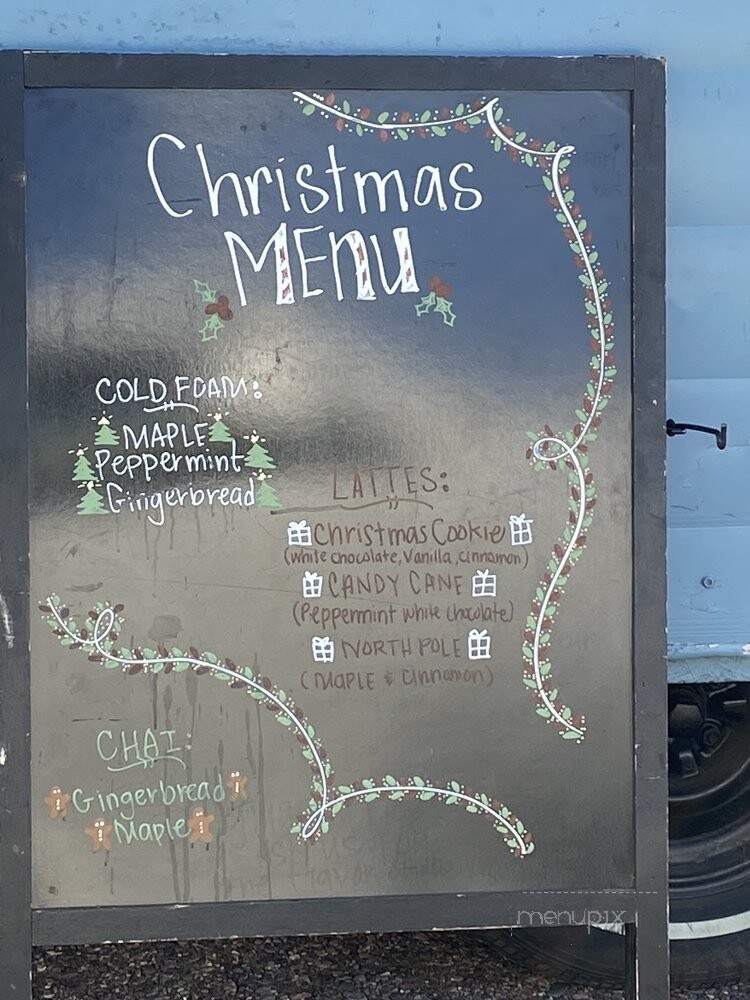 Christmas
MENU
COLD FOAM:
MAPLE
Peppermint
Gingerbread
LATTES:
Christmas Cookie
(white chocolate, Vanilla, cinnamon)
CANDY CANE
(Peppermint white chocolate)
NORTH POLE
(MAPLE & Cinnamon)
CHAI:
Gingerbread
Maple
menupix